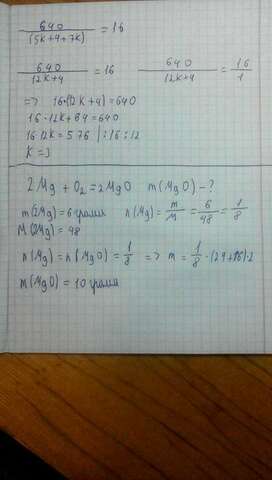 640/(5k+4+7k) = 16
640/12k+4 = 16    640/12k+4 = 16/1
=> 16*(12k+4)=640
16·12k+64=640
16·12k=576 |:16:12
k=3
2Mg + O₂ = 2MgO    m(MgO)-?
m(2Mg)=6 грамм    n(Mg)=m/M=6/48=1/8
M(2Mg)=48
n(Mg)=n(MgO)=1/8 => m=1/8·(24+16)·2
m(MgO)=10 грамм